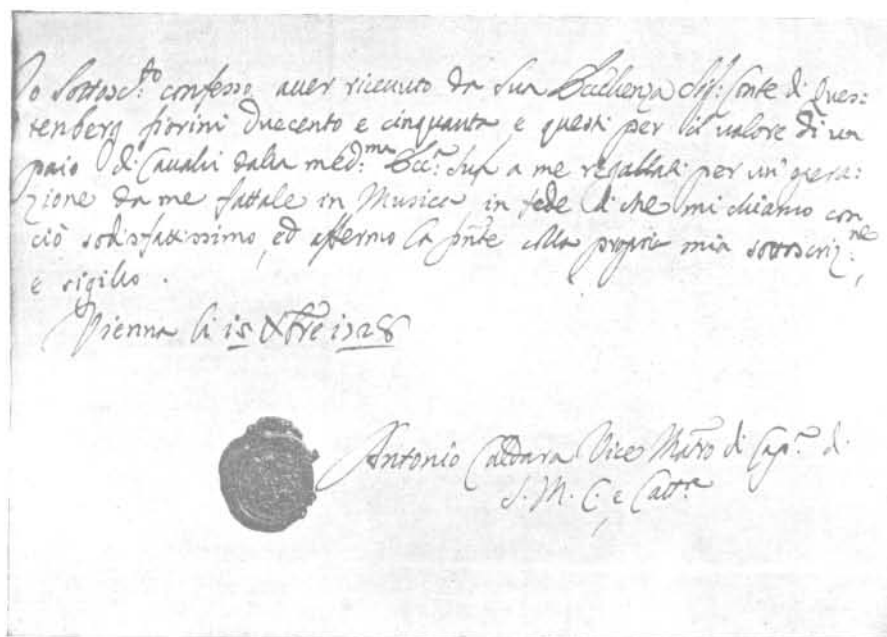 Io Sottosc:to confesso aver riceuuto da Sua Eccellenza Sigr: Conte di Ques:
tenberg fiorini duecento e cinquanta e questi per il ualore di un
paio di Caualli dalla med:ma Ecc:a Sua a me regallati per un'opera:
zione da me fattale in Musica in fede di che mi chiamo con
ciò sodisfattissimo, ed affermo la pnte colla propria mia sottoscriz:ne
e sigillo.
Vienna li 15 Xbre 1728
Antonio Caldara Vice Maro di Capa: di
S. M. C. e Cattca